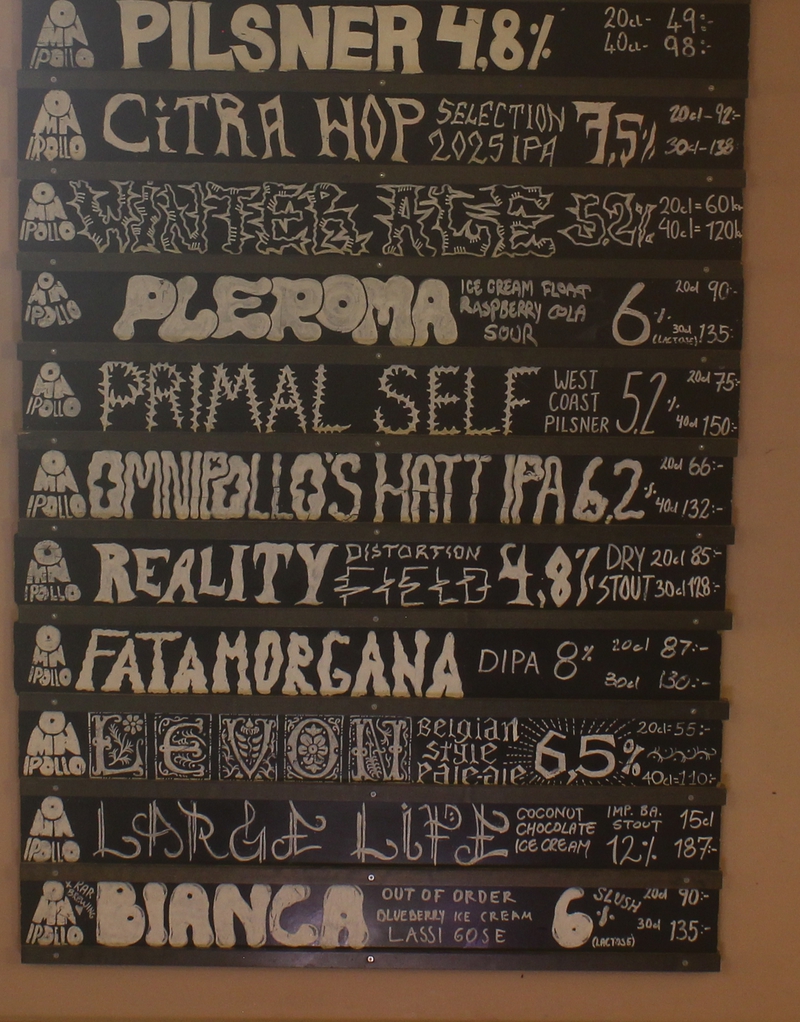 OMNIPOLLO PILSNER 4,8% 20cl- 49:-
40cl- 98:-
OMNIPOLLO CiTRA HOP SELECTION 2025 IPA 7,5% 20cl-92:-
30cl-138
OMNIPOLLO WINTER ALE 5.2% 20cl=60kr
40cl= 120k
OMNIPOLLO PLEROMA ICE CREAM FLOAT
RASPBERRY COLA
SOUR
6% (LACTOSE) 20cl 90:-
30cl 135:-
OMNIPOLLO PRIMAL SELF WEST
COAST
PILSNER
5,2% 20cl 75:-
40cl 150:-
OMNIPOLLO OMNIPOLLO'S HATT IPA 6,2% 20cl 66:-
40cl 132:-
OMNIPOLLO REALITY DISTORTION
FIELD
4,8% DRY
STOUT
20cl 85:-
30cl 128:-
OMNIPOLLO FATAMORGANA DIPA 8% 20cl 87:-
30cl 130:-
OMNIPOLLO LEVON Belgian
style
Pale-ale
6,5% 20cl=55:-
40cl=110:-
OMNIPOLLO LARGE LiFE COCONUT
CHOCOLATE
ICE CREAM
IMP. BA.
STOUT
12% 15cl
187:-
OMNIPOLLO KAR BREWING BIANCA OUT OF ORDER
BLUEBERRY ICE CREAM
LASSI GOSE
6% (LACTOSE) SLUSH 20cl 90:-
30cl 135:-